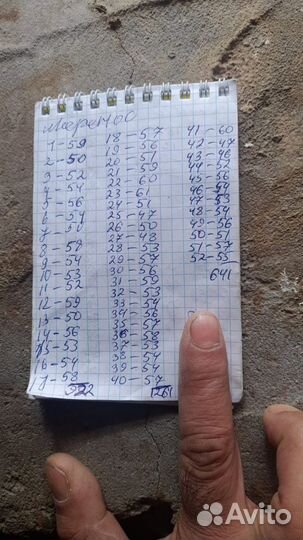 1-59
2-50
3-52
4-54
5-56
6-54
7-50
8-58
9-54
10-53
11-52
12-59
13-50
14-56
15-53
16-54
17-58
922
18-57
19-56
20-51
21-59
22-60
23-61
24-51
25-47
26-50
27-48
28-53
29-57
30-56
31-59
32-53
33-54
34-56
35-57
36-58
37-53
38-54
39-54
40-57
1261
41-60
42-47
43-46
44-52
45-56
46-54
47-53
48-54
49-56
50-51
51-57
52-55
641
Avito